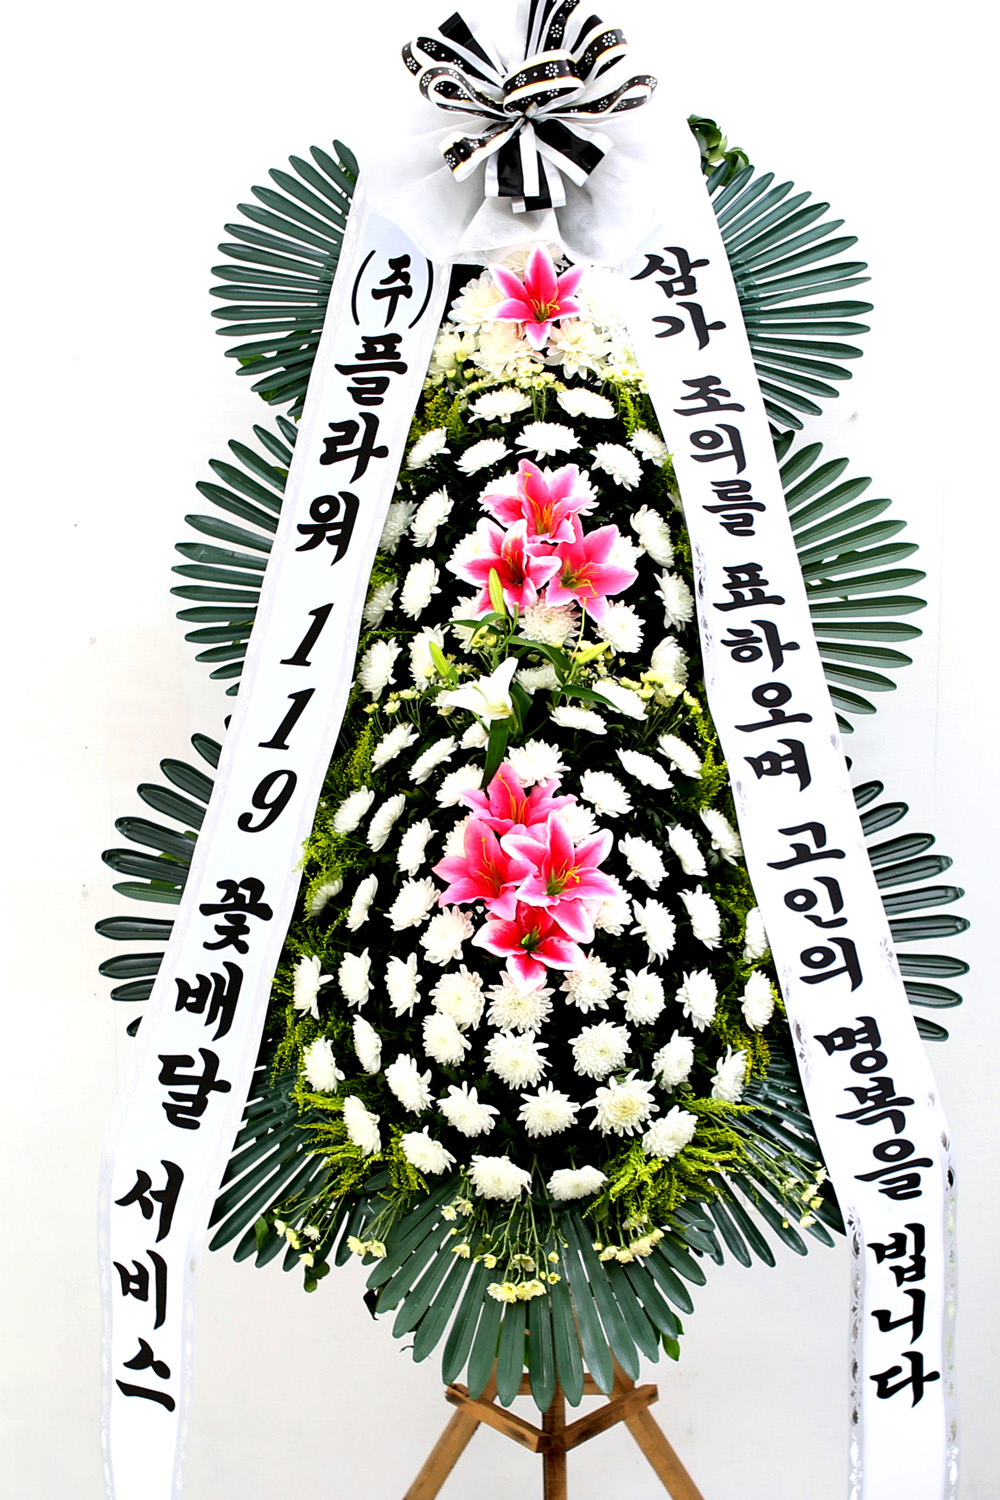 (주)플라워 119 꽃배달 서비스
삼가 조의를 표하오며 고인의 명복을 빕니다